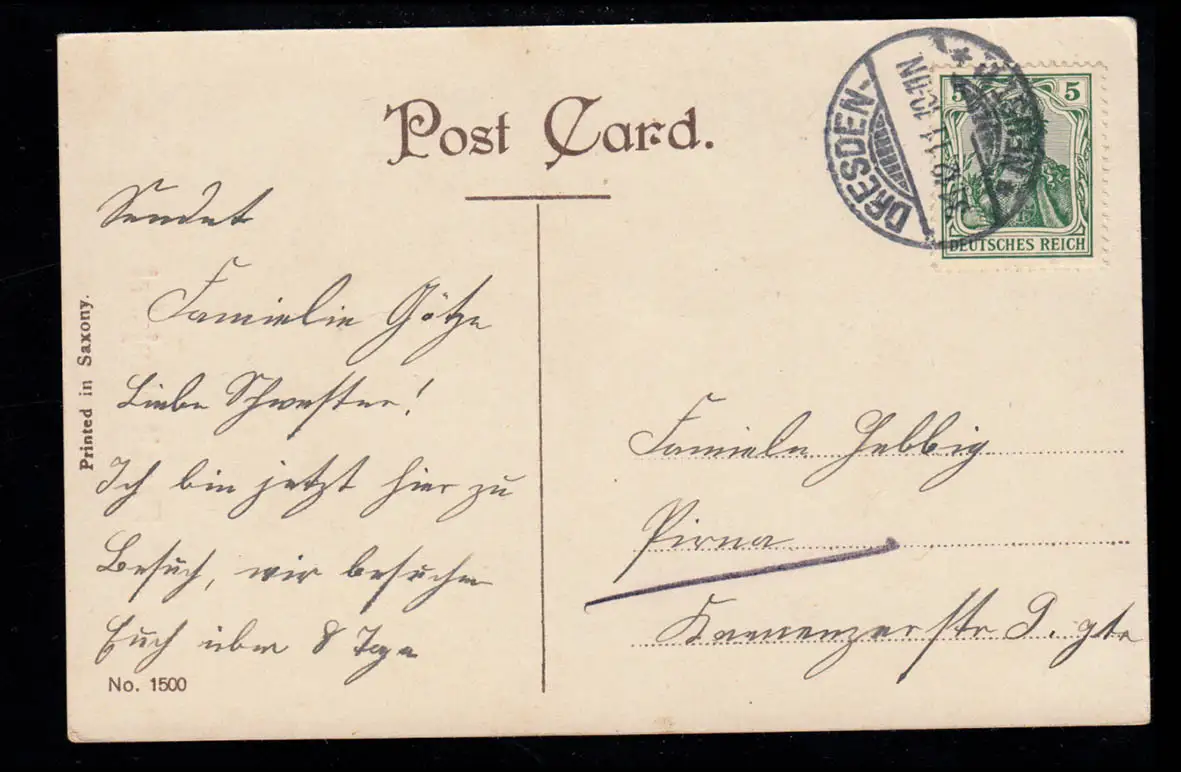 Post Card.
DRESDEN-
5 5
DEUTSCHES REICH
Sendet
Familie Götze
Liebe Schwester!
Ich bin jetzt hier zu
Besuch, wir besuchen
Euch über 8 Tage
No. 1500
Printed in Saxony.
Hebbig
Pirna